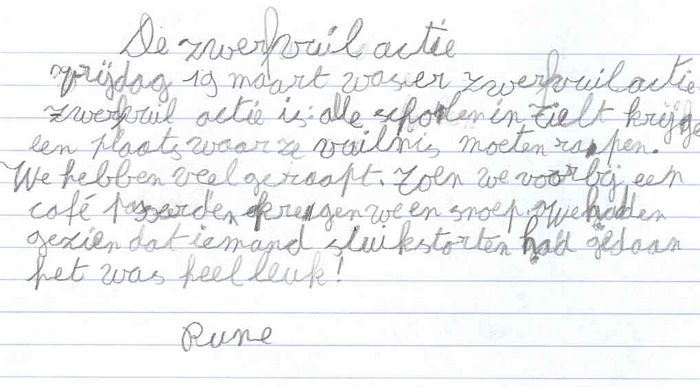 De zwerfvuil actie
vrijdag 19 maart was er zwerfvuil actie
zwerfvuil actie is: alle scholen in Tielt krijgen
een plaats waar ze vuilnis moeten rapen.
We hebben veel geraapt. Toen we voorbij een
café passerden kregen we en snoep. We hadden
gezien dat iemand sluikstorten had gedaan
het was heel leuk!
Rune